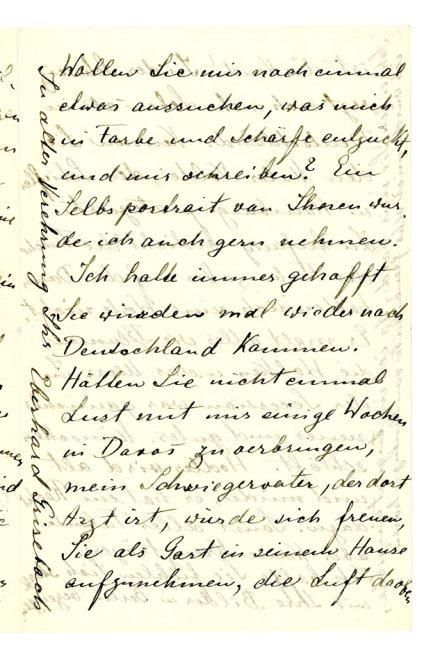 Wollen Sie mir noch einmal
etwas aussuchen, was mich
in Farbe und Schärfe entzückt,
und mir schreiben? Ein
Selbsportrait von Ihnen wür-
de ich auch gern nehmen.
Ich habe immer gehofft
Sie würden mal wieder nach
Deutschland kommen.
Hätten Sie nicht einmal
Lust mit mir einige Wochen
in Davos zu verbringen,
mein Schwiegervater, der dort
Arzt ist, würde sich freuen,
Sie als Gast in seinem Hause
aufzunehmen, die Luft da oben
In alter Verehrung Ihr Eberhard Grisebach